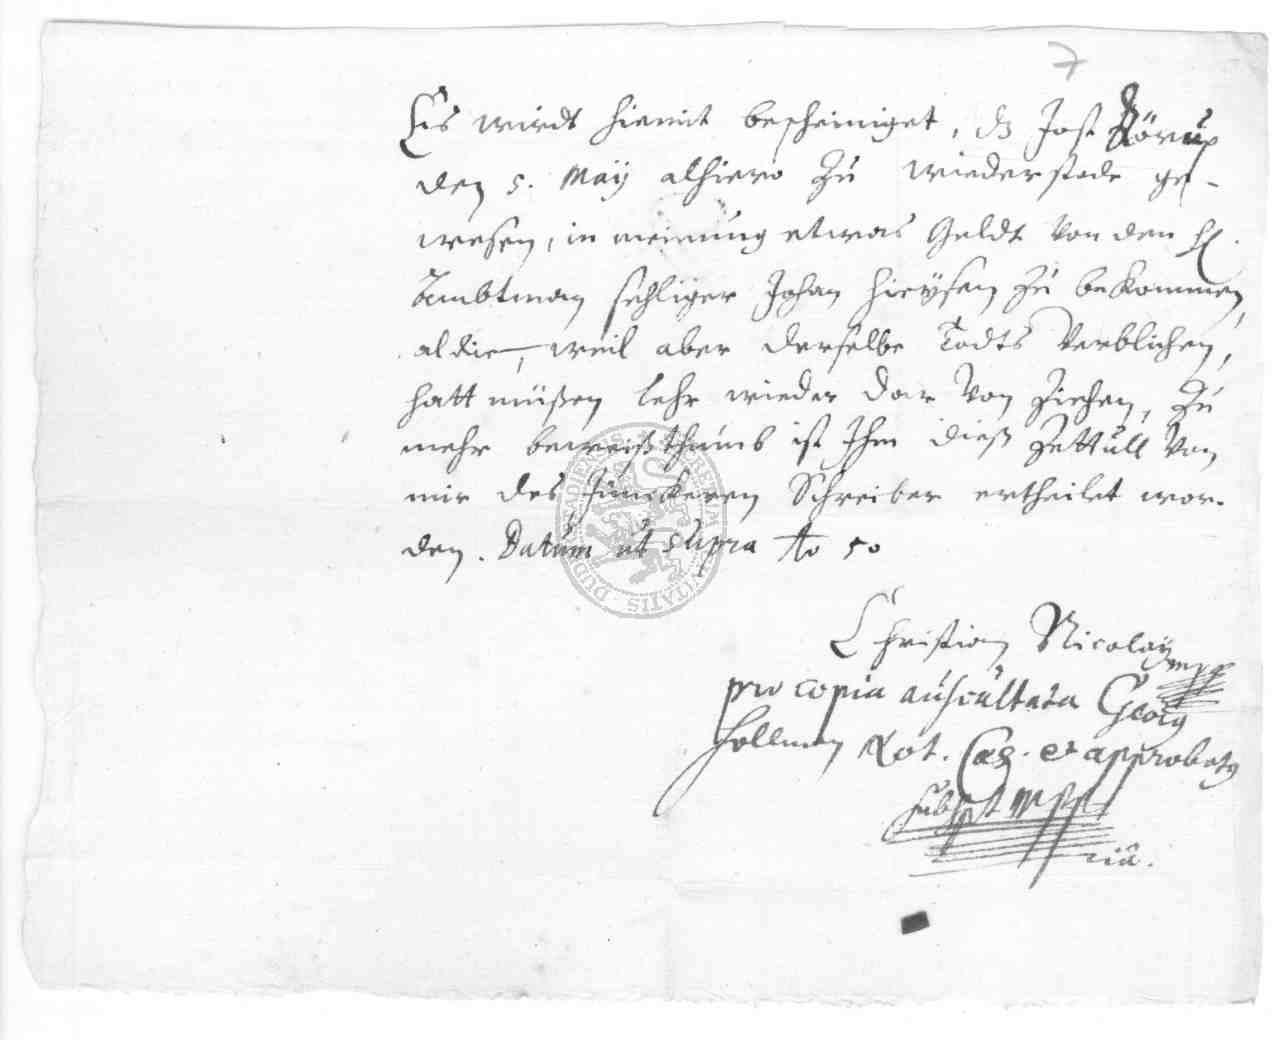 7
Eß wirdt hiemit bescheiniget, dz Jost Körup
den 5. Maÿ alhiero Zu wiederstade ge-
wesen, in meinung etwas Geldt Von den H.
Ambtman sehliger Johan Zu bekommen,
aldie, weil aber derselbe Todts Verblichen,
hatt müßen lehr wieder dar Von Ziehen, Zu
mehr beweißthumb ist Ihm dieß Zettull Von
mir des Junckeren Schreiber ertheilet wor-
den. Datum ut supra Ao 50
Christian Nicolay
mpp
pro copia auscultata Georg
Hollman Not. Cæs. et approbatq
subspt mpp
riâ.